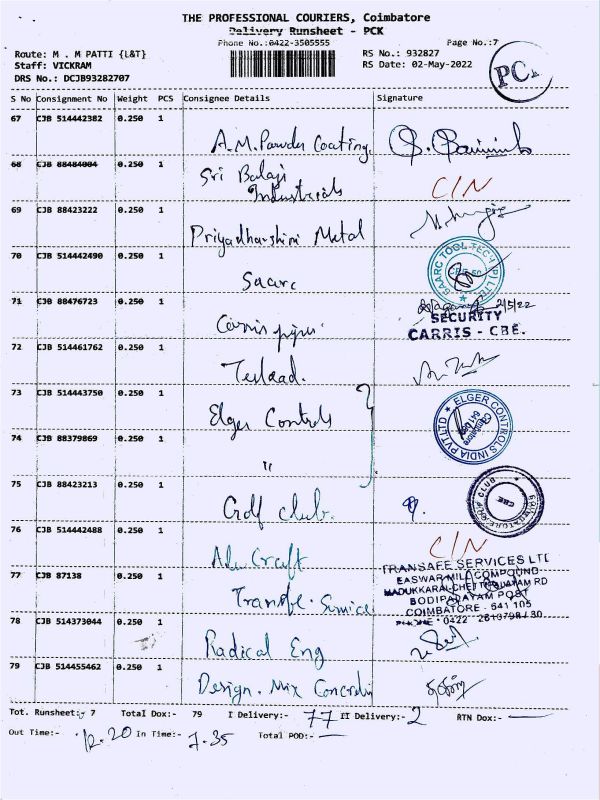 THE PROFESSIONAL COURIERS, Coimbatore
Delivery Runsheet - PCK
Phone No.:0422-3505555 Page No.:7
Route: M . M PATTI {L&T} RS No.: 932827
Staff: VICKRAM RS Date: 02-May-2022
DRS No.: DCJB93282707
S No Consignment No Weight PCS Consignee Details Signature
67 CJB 514442382 0.250 1 A.M. Powder Coating
68 CJB 88484004 0.250 1 Sri Balaji Industrials C/N
69 CJB 88423222 0.250 1 Priyadharshini Metal
70 CJB 514442490 0.250 1 Saarc
SAARC TOOL TECH (P) LTD
71 CJB 88476723 0.250 1 Carris pipes. 2/5/22
SECURITY
CARRIS - CBE.
72 CJB 514461762 0.250 1
73 CJB 514443750 0.250 1 Elger Controls
ELGER CONTROLS INDIA PVT LTD
Coimbatore
74 CJB 88379869 0.250 1 "
75 CJB 88423213 0.250 1 Golf club.
CBE
76 CJB 514442488 0.250 1 Alu Craft C/N
77 CJB 87138 0.250 1 Transfe. Service
TRANSAFE SERVICES LTD
EASWAR MILL COMPOUND
MADUKKARAI-CHETTIPALAYAM RD
BODIPALAYAM POST
COIMBATORE - 641 105
PHONE - 0422
78 CJB 514373044 0.250 1 Radical Eng
79 CJB 514455462 0.250 1 Design. Mix Concrete
Tot. Runsheet:- 7 Total Dox:- 79 I Delivery:- 77 II Delivery:- 2 RTN Dox:- —
Out Time:- 12.20 In Time:- 7.35 Total POD:- —